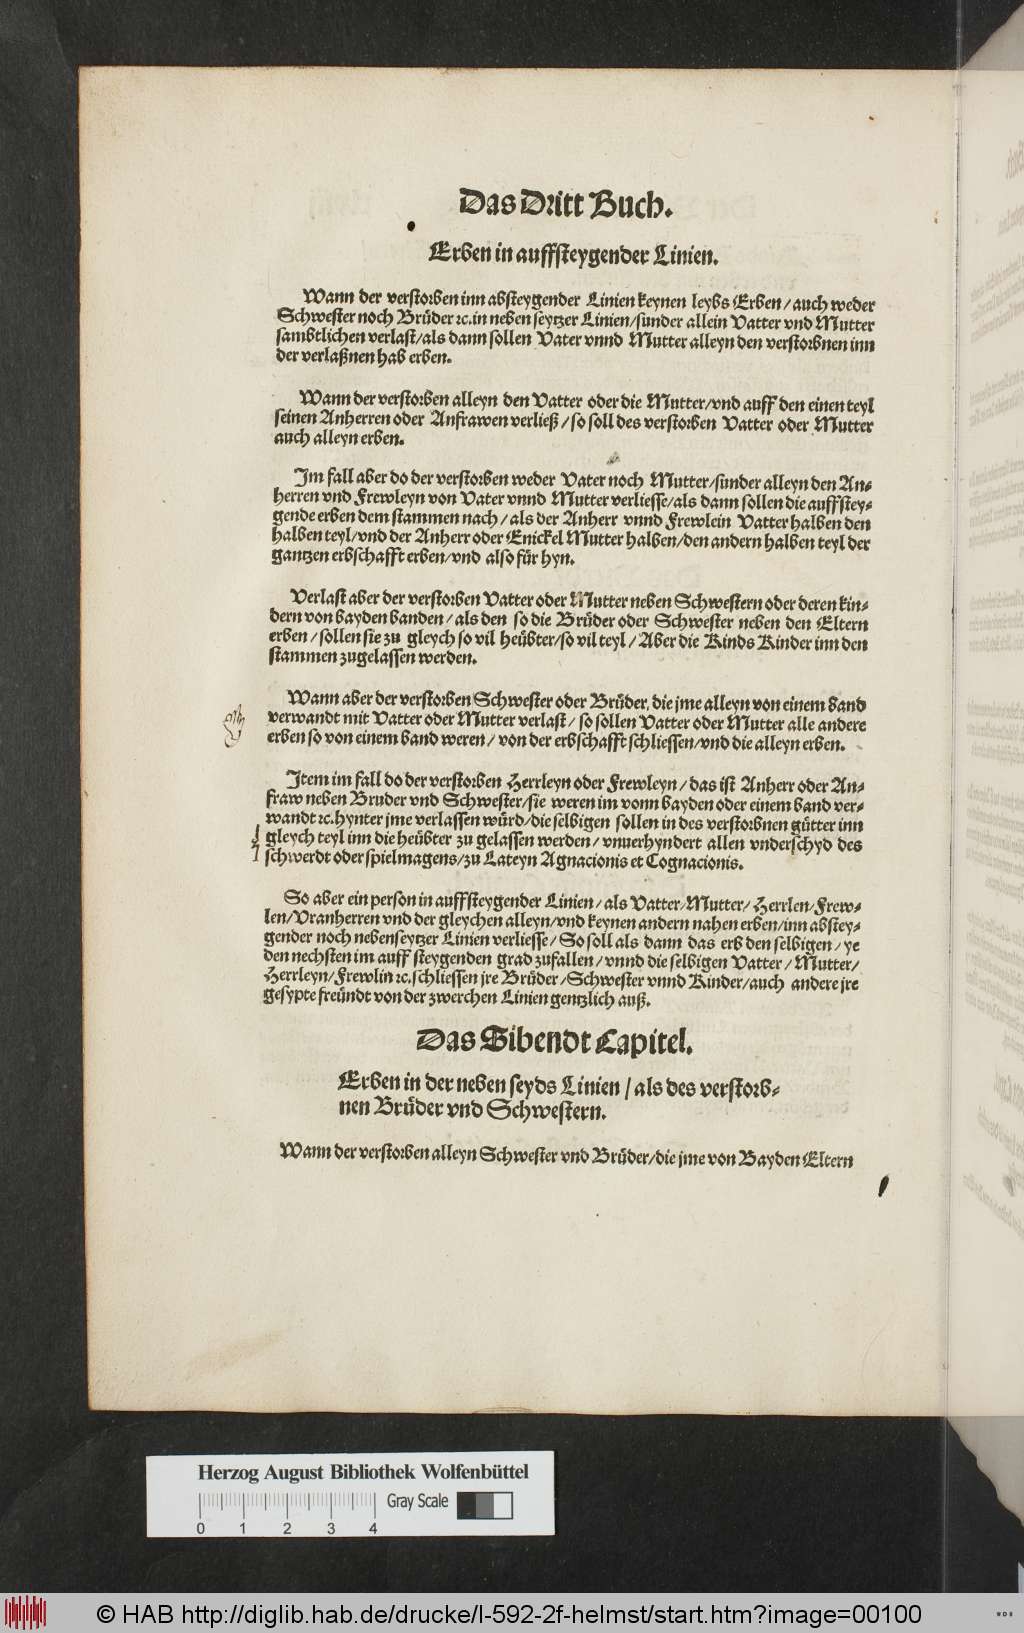 Das Dritt Buch.
Erben in auffsteygender Linien.
Wann der verstorben inn absteygender Linien keynen leybs Erben / auch weder
Schwester noch Brüder ꝛc. in neben seytzer Linien / sunder allein Vatter vnd Mutter
sambtlichen verlast / als dann sollen Vater vnnd Mutter alleyn den verstorbnen inn
der verlaßnen hab erben.
Wann der verstorben alleyn den Vatter oder die Mutter / vnd auff den einen teyl
seinen Anherren oder Anfrawen verließ / so soll des verstorben Vatter oder Mutter
auch alleyn erben.
Im fall aber do der verstorben weder Vater noch Mutter / sunder alleyn den An⸗
herren vnd Frewleyn von Vater vnnd Mutter verliesse / als dann sollen die auffstey⸗
gende erben dem stammen nach / als der Anherr vnnd Frewlein Vatter halben den
halben teyl / vnd der Anherr oder Enickel Mutter halben / den andern halben teyl der
gantzen erbschafft erben / vnd also für hyn.
Verlast aber der verstorben Vatter oder Mutter neben Schwestern oder deren kin⸗
dern von bayden banden / als den so die Brüder oder Schwester neben den Eltern
erben / sollen sie zu gleych so vil heübter / so vil teyl / Aber die Kinds Kinder inn den
stammen zugelassen werden.
Wann aber der verstorben Schwester oder Brüder, die jme alleyn von einem band
verwandt mit Vatter oder Mutter verlast / so sollen Vatter oder Mutter alle andere
erben so von einem band weren / von der erbschafft schliessen / vnd die alleyn erben.
Item im fall do der verstorben Herrleyn oder Frewleyn / das ist Anherr oder An⸗
fraw neben Bruder vnd Schwester / sie weren im vonn bayden oder einem band ver⸗
wandt ꝛc. hynter jme verlassen würd / die selbigen sollen in des verstorbnen gütter inn
gleych teyl inn die heübter zu gelassen werden / vnuerhyndert allen vnderschyd des
schwerdt oder spielmagens / zu Lateyn Agnacionis et Cognacionis.
So aber ein person in auffsteygender Linien / als Vatter / Mutter / Herrlen / Frew⸗
len / Vranherren vnd der gleychen alleyn / vnd keynen andern nahen erben / inn abstey⸗
gender noch nebenseytzer Linien verliesse / So soll als dann das erb den selbigen / ye
den nechsten im auff steygenden grad zufallen / vnnd die selbigen Vatter / Mutter /
Herrleyn / Frewlin ꝛc. schliessen jre Brüder / Schwester vnnd Kinder / auch andere jre
gesypte freündt von der zwerchen Linien gentzlich auß.
Das Sibendt Capitel.
Erben in der neben seyds Linien / als des verstorb⸗
nen Brüder vnd Schwestern.
Wann der verstorben alleyn Schwester vnd Brüder / die jme von Bayden Eltern
Herzog August Bibliothek Wolfenbüttel
Gray Scale
0 1 2 3 4
© HAB http://diglib.hab.de/drucke/l-592-2f-helmst/start.htm?image=00100